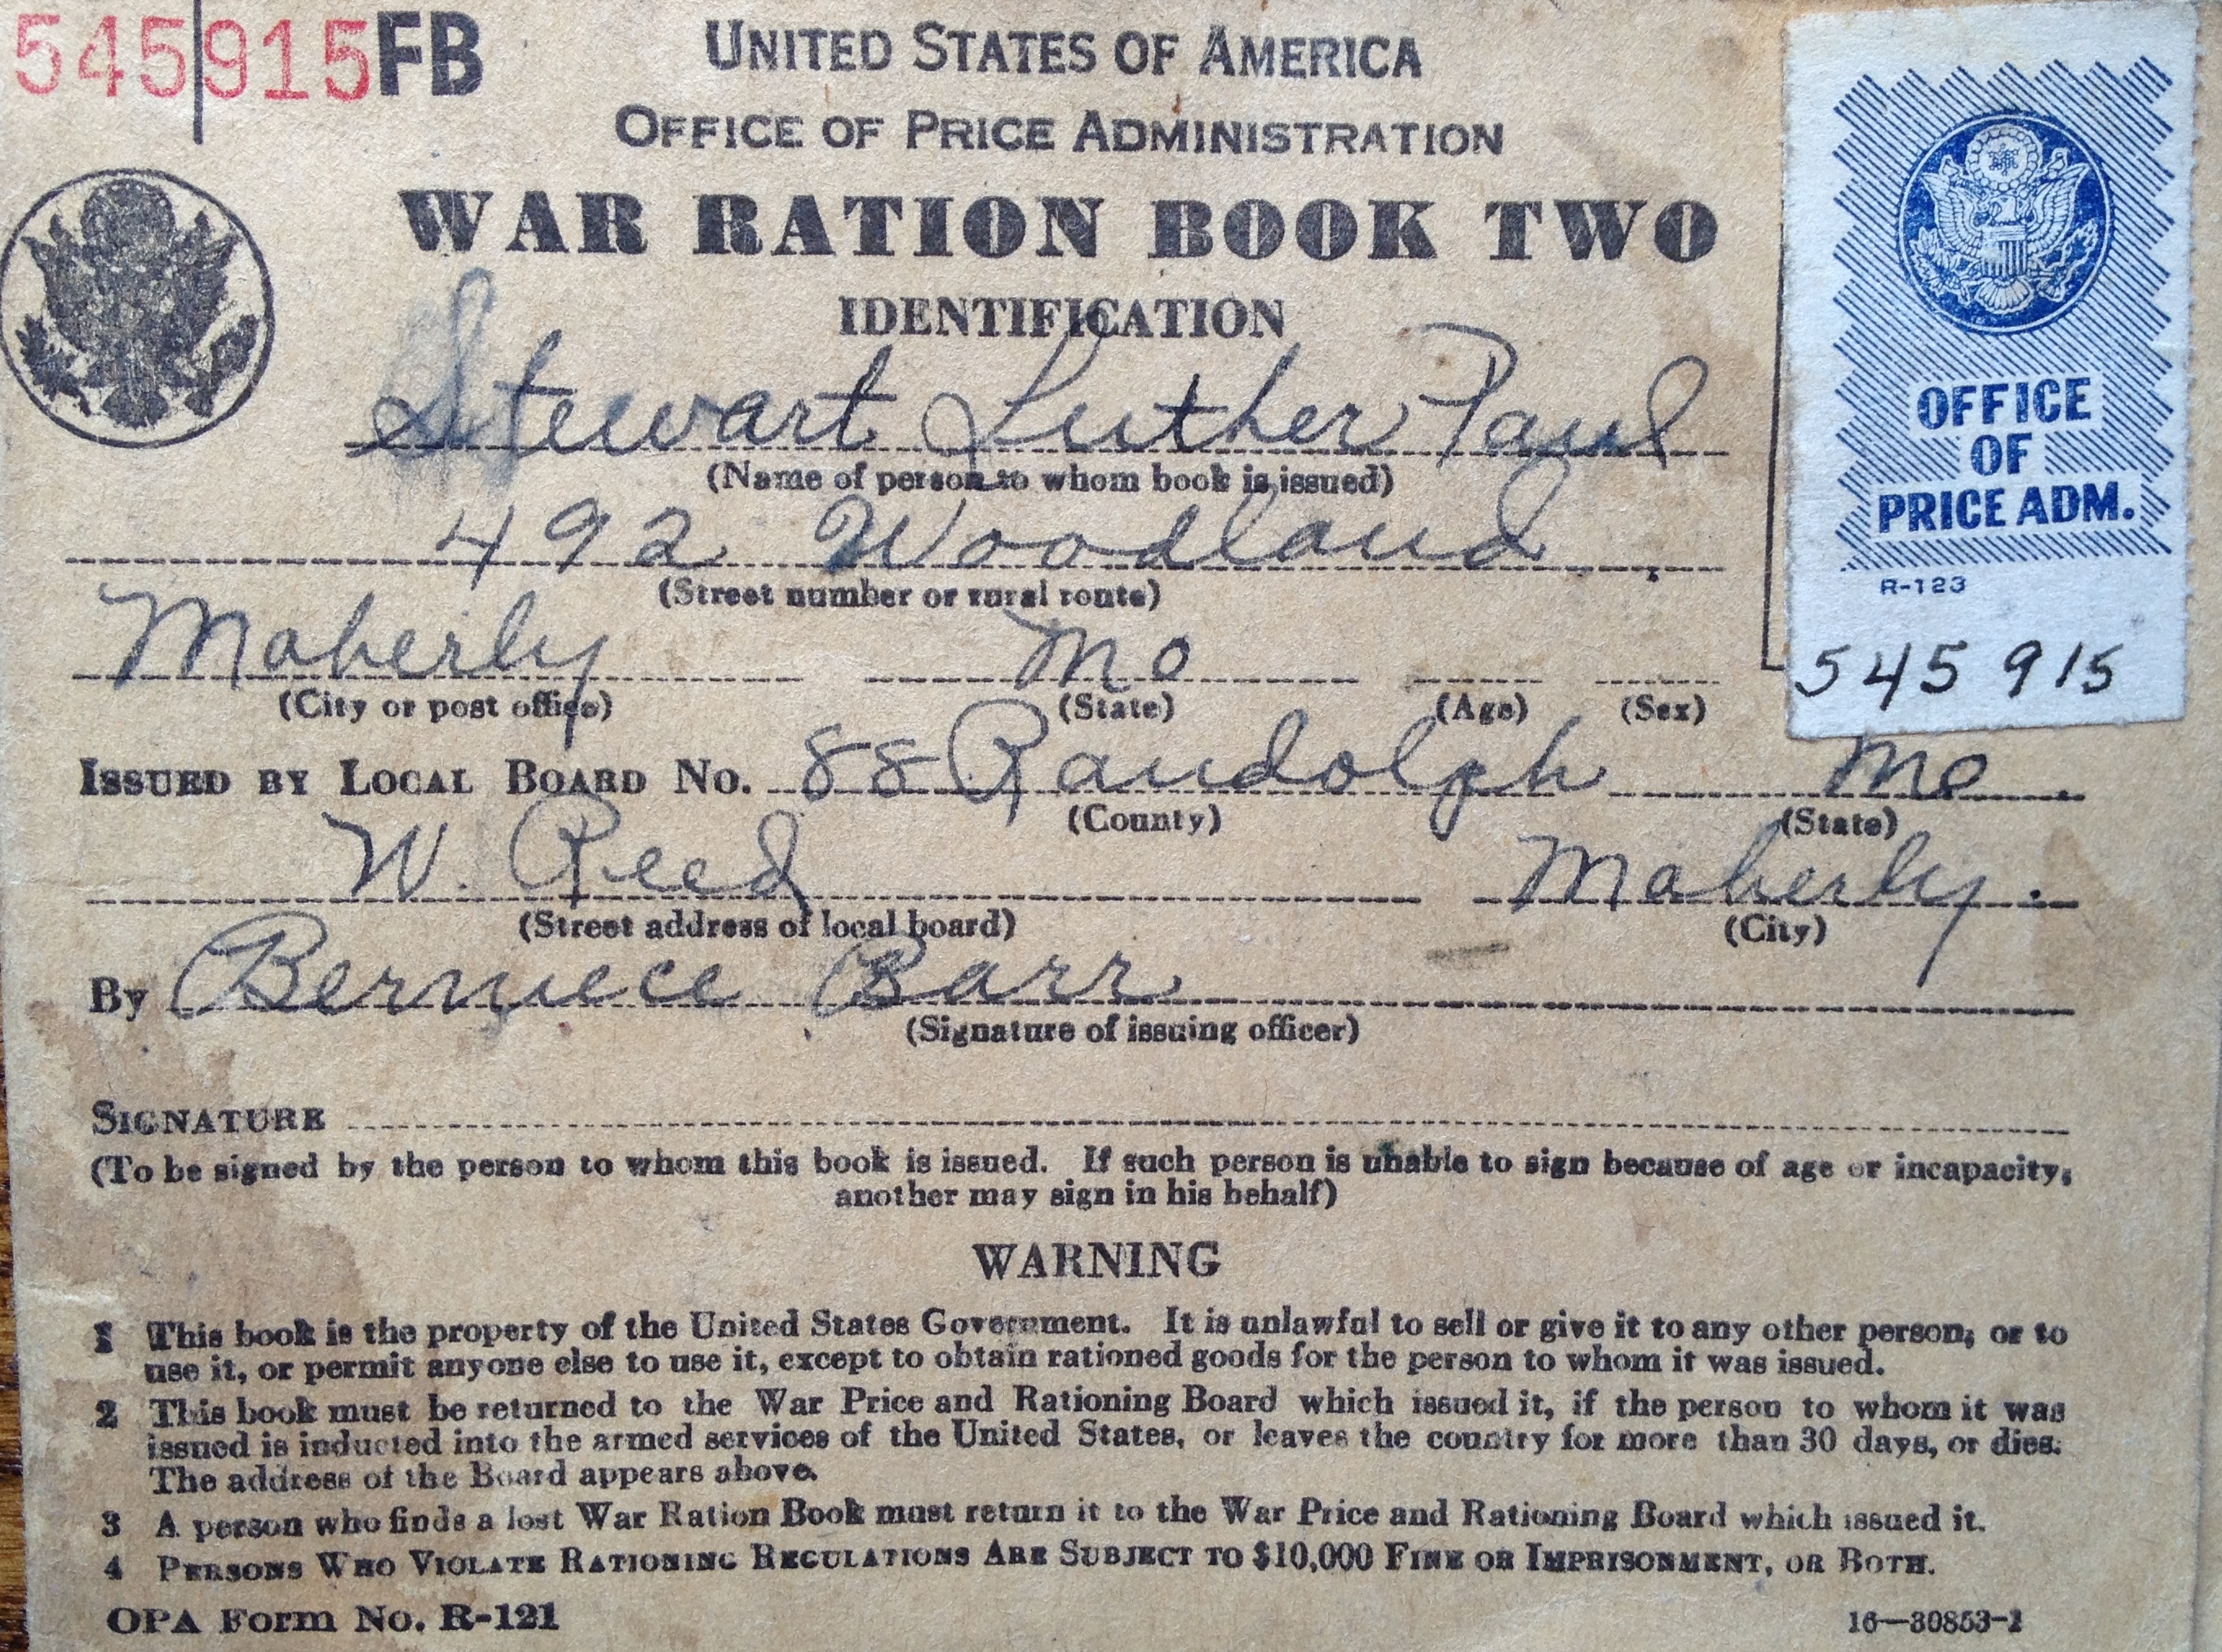 545915FB
UNITED STATES OF AMERICA
OFFICE OF PRICE ADMINISTRATION
WAR RATION BOOK TWO
IDENTIFICATION
OFFICE
OF
PRICE ADM.
R-123
545 915
Stewart Luther Paul
(Name of person to whom book is issued)
492 Woodland
(Street number or rural route)
Moberly Mo
(City or post office) (State) (Age) (Sex)
ISSUED BY LOCAL BOARD NO. 88 Randolph Mo.
(County) (State)
W. Reed Moberly.
(Street address of local board) (City)
By Berniece Barr
(Signature of issuing officer)
SIGNATURE
(To be signed by the person to whom this book is issued. If such person is unable to sign because of age or incapacity,
another may sign in his behalf)
WARNING
1 This book is the property of the United States Government. It is unlawful to sell or give it to any other person, or to
use it, or permit anyone else to use it, except to obtain rationed goods for the person to whom it was issued.
2 This book must be returned to the War Price and Rationing Board which issued it, if the person to whom it was
issued is inducted into the armed services of the United States, or leaves the country for more than 30 days, or dies.
The address of the Board appears above.
3 A person who finds a lost War Ration Book must return it to the War Price and Rationing Board which issued it.
4 PERSONS WHO VIOLATE RATIONING REGULATIONS ARE SUBJECT TO $10,000 FINE OR IMPRISONMENT, OR BOTH.
OPA Form No. R-121 16—30853-1